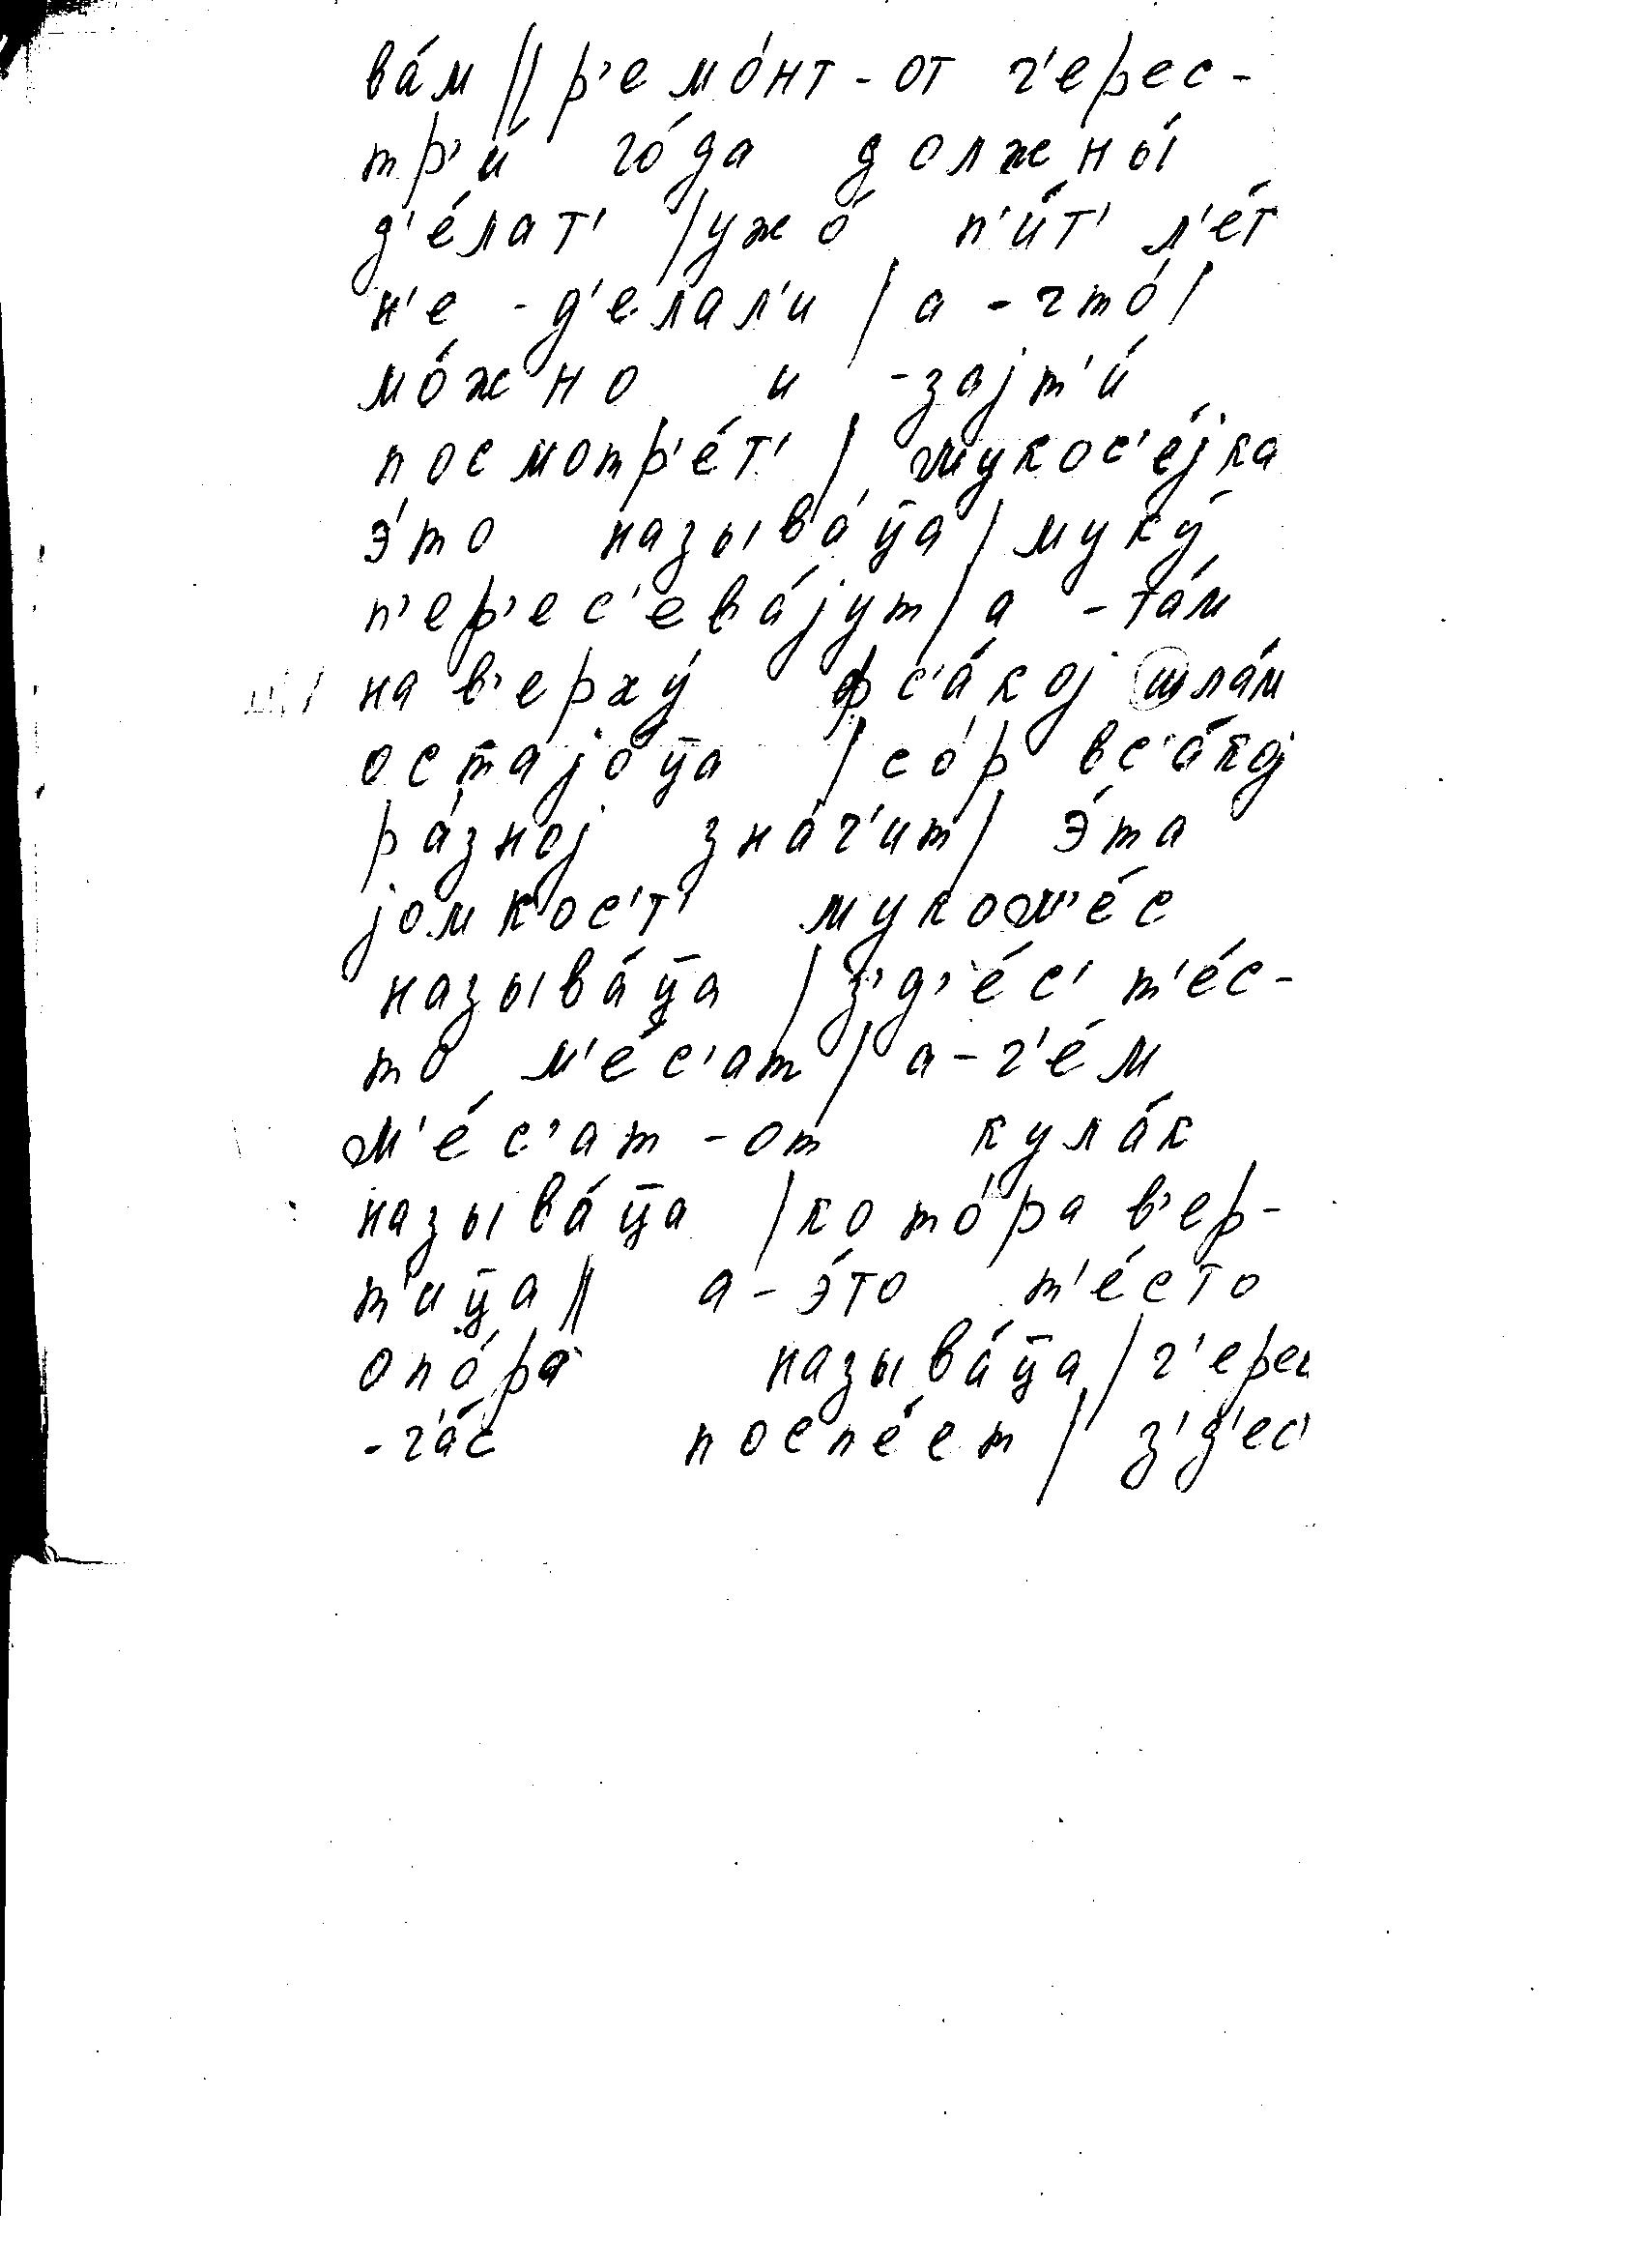 ва́м // р’емо́нт-от ч’ерес-
тр’и́ го́да должны́
д’е́лат’ / ужо́ п’и́т’ л’е́т
н’е-д’елал’и / а-что́ /
мо́жно и-зајт’и́
посмотр’е́т’ / мукос’е́јка
э́то называ́ц̄а / муку́
п’ер’ес’ева́јут / а-та́м
нав’ерху́ фс’а́кој шла́м
остајо́ц̄а / со́р вс’а́кој
ра́зној зна́ч’ит / э́та
јомкос’т’ муком’е́с
называ́ц̄а / з’д’е́с’ т’е́с-
то м’е́с’ат / а-ч’е́м
м’е́с’ат-от кула́к
называ́ц̄а / кото́ра в’ер-
т’иц̄а // а-э́то т’е́сто
опо́ра называ́ц̄а / ч’ерес
-ч’а́с поспе́ет / з’д’ес’